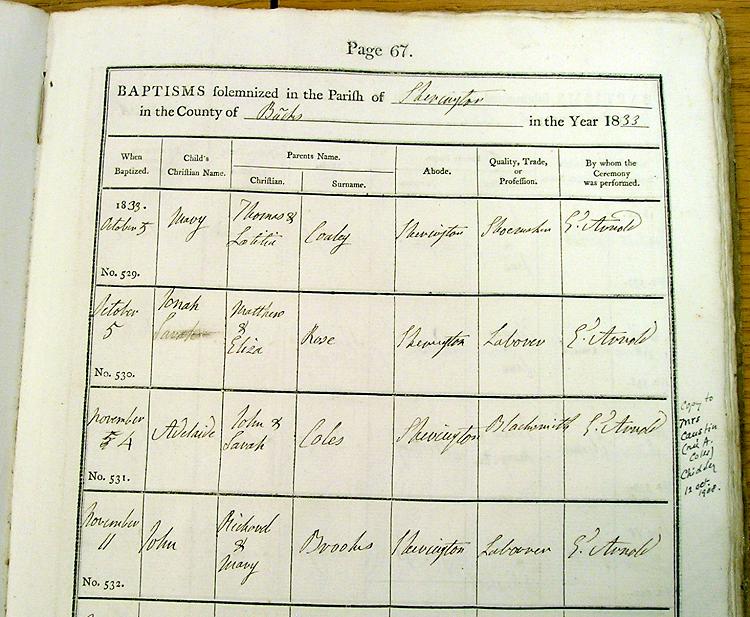 Page 67.
BAPTISMS solemnized in the Parish of Sherington
in the County of Bucks in the Year 1833
When Baptized. Child's Christian Name. Parents Name. Abode. Quality, Trade, or Profession. By whom the Ceremony was performed.
Christian. Surname.
1833.
October 5 Mary Thomas & Lœtitia Coaley Sherington Shoemaker G. Arnold
No. 529.
October 5 Jonah Sarah Matthew & Eliza Rose Sherington Laborer G. Arnold
No. 530.
November 4 Adelaide John & Sarah Coles Sherington Blacksmith G. Arnold
No. 531.
November 11 John Richard & Mary Brooks Sherington Laborer G. Arnold
No. 532.
Copy to
Mrs
Caustin
A.
Coles)
12 Oct